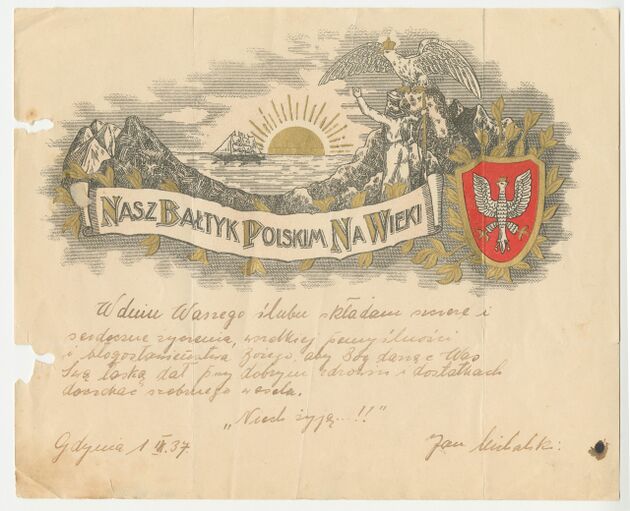 NASZ BAŁTYK POLSKIM NA WIEKI
W dniu Waszego ślubu składam szczere i
serdeczne życzenia, wszelkiej pomyślności
i błogosławieństwa Bożego, aby Bóg darząc Was
Swą łaską dał przy dobrym zdrowiu i dostatkach
doczekać srebrnego wesela.
„Niech żyją...!!"
Gdynia 1 37 Jan Michalski